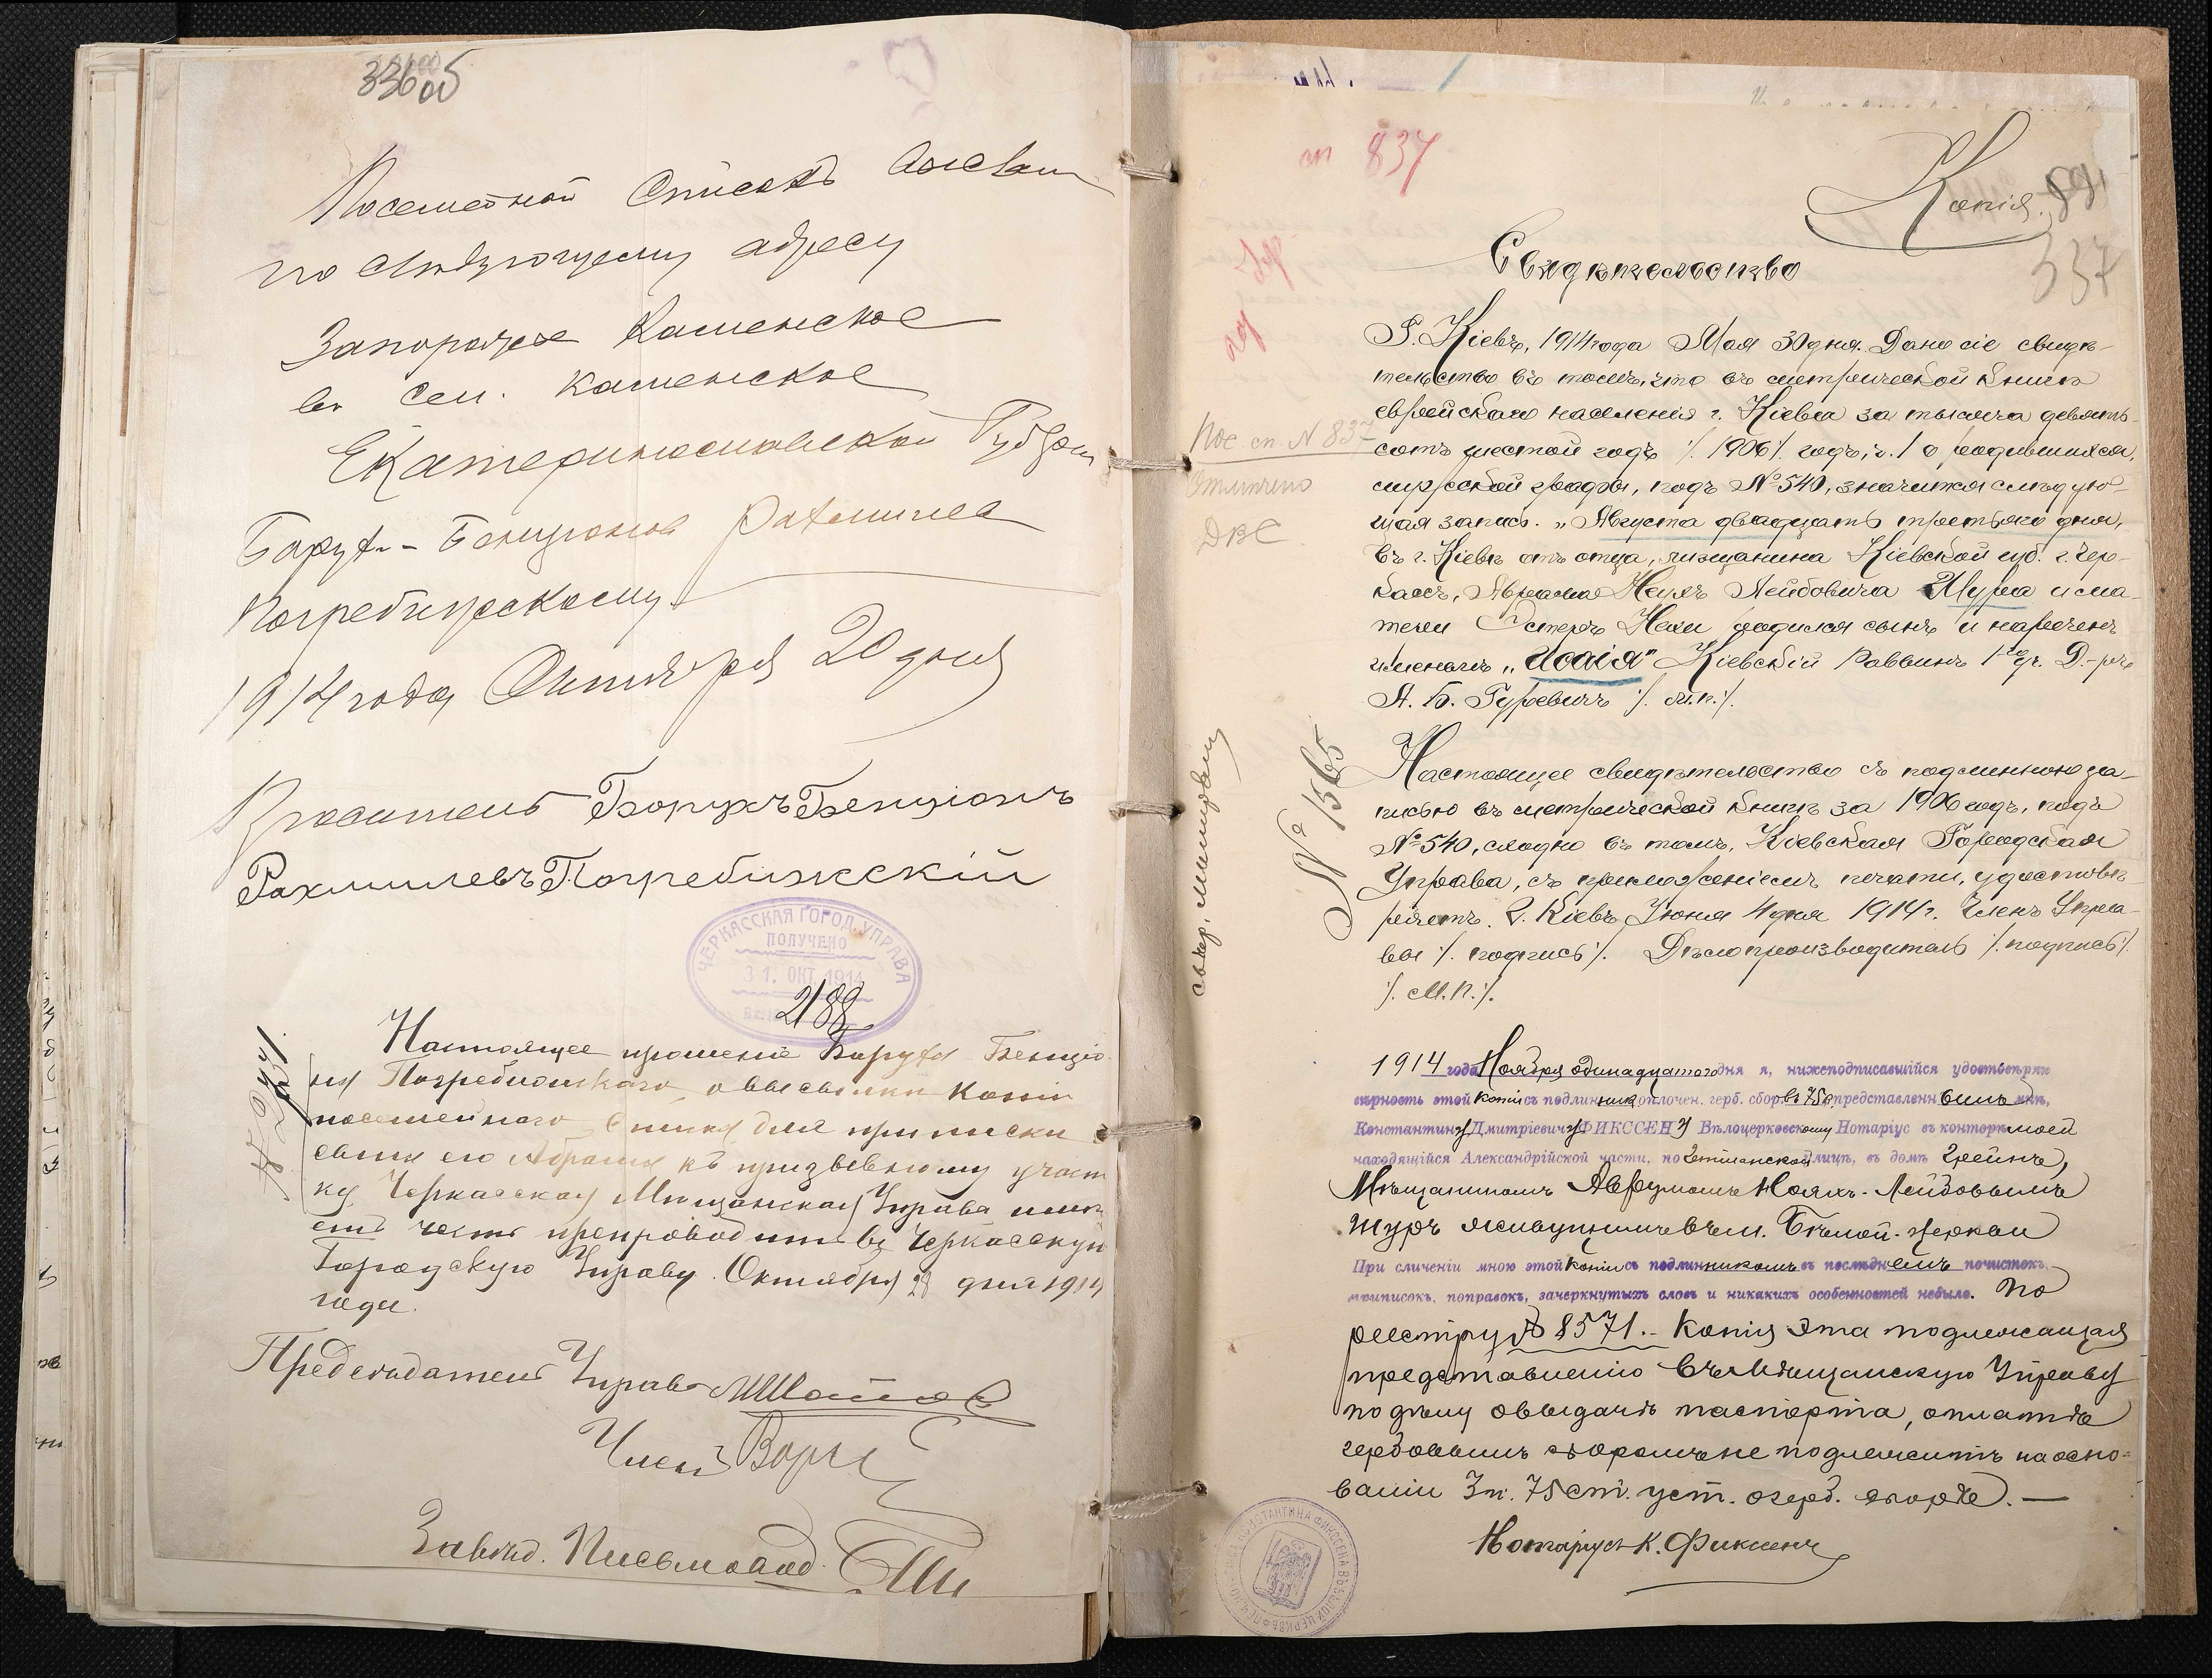 336 об
Посемейной Списокъ выслать
по слѣдующему адресу
Запорожье Каменское
въ сел. Каменское
Екатеринославской Губерн
Борух-Бенционов Рахмилев
Погребижскому
1914 года Октября 20 дня
Проситель Борухъ Бенціонъ
Рахмилевъ Погребижскій
ЧЕРКАССКАЯ ГОРОД. УПРАВА
ПОЛУЧЕНО
31. ОКТ. 1914
2188
№ 2441.
Настоящее прошеніе Боруха Бенціо-
на Погребижскаго о высылки копіи
посемейнаго списка для приписки
сына его Абрама къ призывному участ
ку Черкасская Мещанская Управа имѣ
етъ честь препроводить въ Черкасскую
Городскую Управу. Октября 28 дня 1914
года.
Предсѣдатель Управы
Членъ
Завѣд. Письмовод.
сп 837
Копія.
337
Свидѣтельство
Г. Кіевъ, 1914 года Мая 30 дня. Дано сіе свидѣ-
тельство въ томъ, что въ метрической книгѣ
еврейскаго населенія г. Кіева за тысяча девять-
сотъ шестой годъ /. 1906 /. годъ, ч. 1 о родившихся,
мужской графы, подъ № 540, значится слѣдую-
щая запись. „Августа двадцать третьяго дня,
въ г. Кіевѣ отъ отца, мѣщанина Кіевской губ. г. Чер-
кассъ, Абрама Ноухъ Лейбовича Шура и ма-
тери Эстеръ Нехи родился сынъ и нареченъ
именемъ „Исаія" Кіевскій Раввинъ 1го уч. Д-ръ
А. Б. Гуревичъ /. м.п. /.
Пос. сп. N 837
Отмѣчено
ДВС
№ 1565
Настоящее свидѣтельство съ подлинною за-
писью въ метрической книгѣ за 1906 годъ, подъ
№ 540, сходно въ томъ, Кіевская Городская
Управа, съ приложеніемъ печати, удостовѣ-
ряетъ. Г. Кіевъ Іюня 4 дня 1914 г. Членъ Упра-
вы /. подпись /. Дѣлопроизводитель /. подпись /.
/. М.П. /.
1914 года Ноября одинадцатого дня я, нижеподписавшійся удостовѣряю
вѣрность этой копіи съ подлинникомъ, оплочен. герб. сбор въ 75 к. представленнымъ мнѣ,
Константину Дмитріевичу ФИКССЕНУ Бѣлоцерковскому Нотаріусу въ конторѣ моей
находящійся Александрійской части, по Гетманской улицѣ, въ домѣ Грейнъ,
Мѣщаниномъ Аврумомъ Ноахъ-Лейбовымъ
Шуръ живущимъ въ м. Бѣлой-Церкви
При сличеніи мною этой копіи съ подлинникомъ въ послѣднемъ почистокъ,
приписокъ, поправокъ, зачеркнутыхъ словъ и никакихъ особенностей небыло. По
реестру № 8571.- Копія эта подлежащая
представленію въ Мѣщанскую Управу
по дѣлу о выдачѣ паспорта, оплатѣ
гербовымъ сборомъ не подлежитъ на осно-
ваніи 3 п. 75 ст. уст. о герб. сборѣ. —
Нотаріусъ К. Фиксенъ